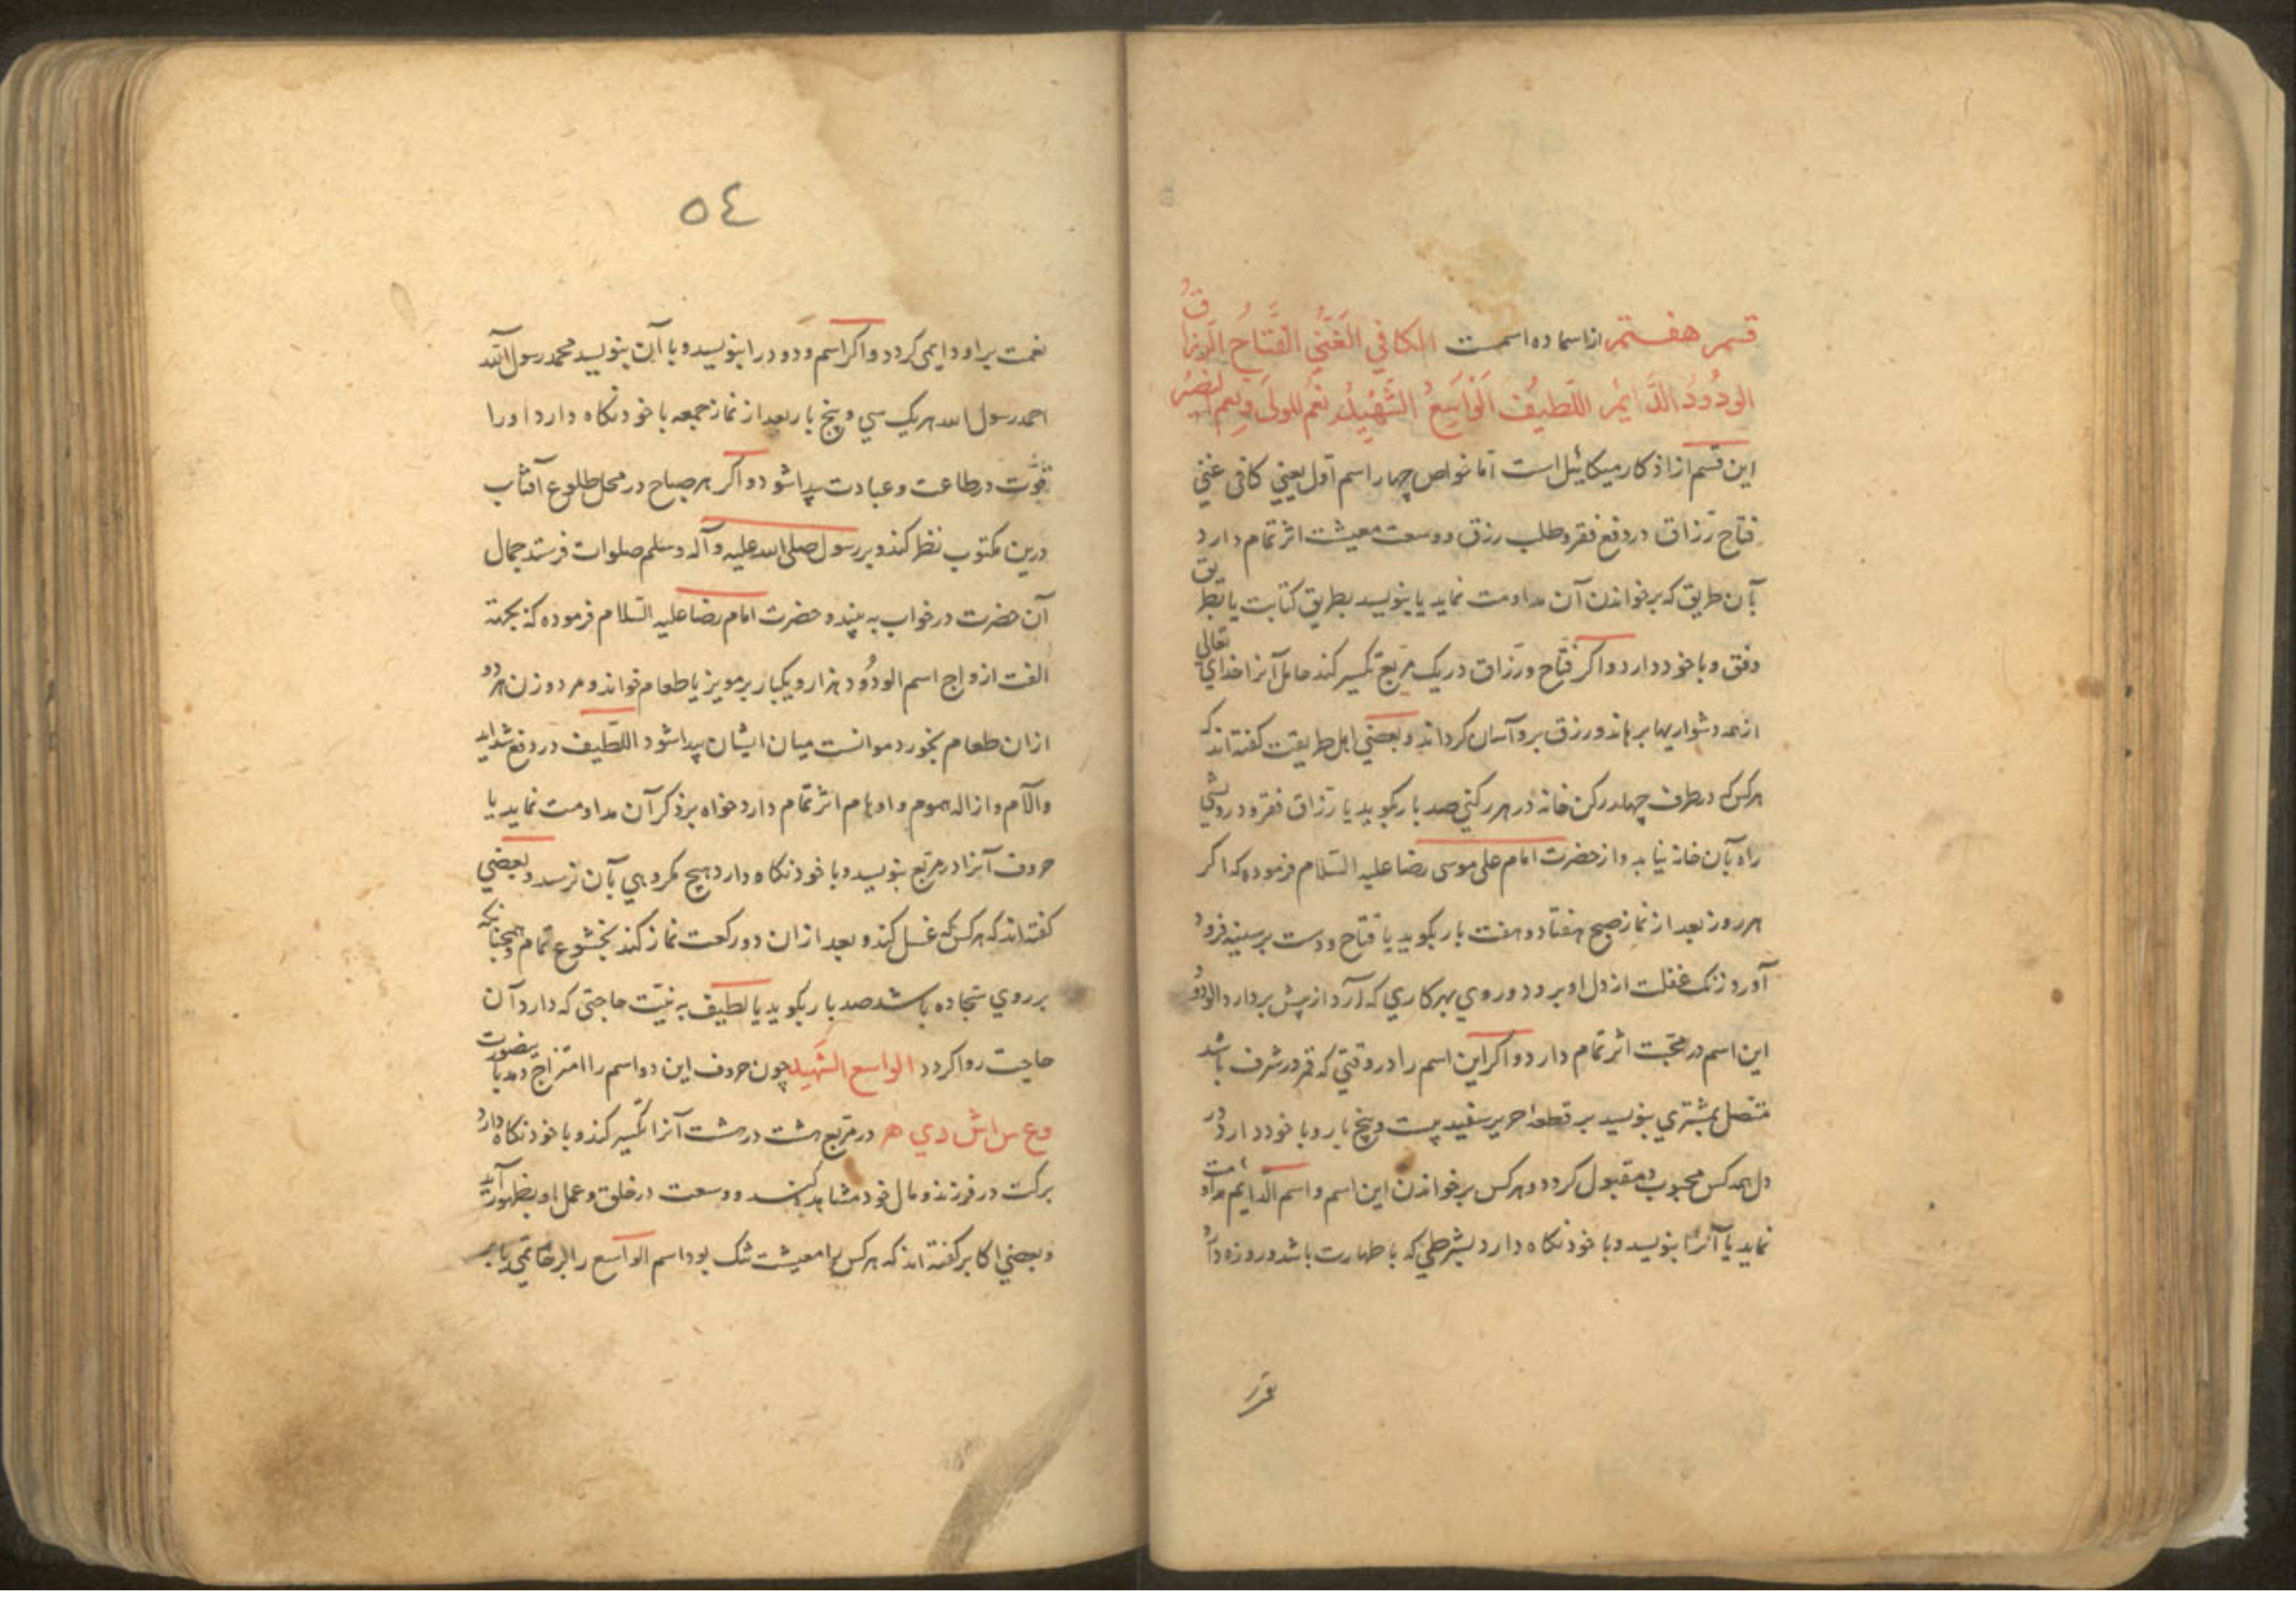 قسم هفتم از اسما ده اسمست الكافي الغَنِّي الفَّتاحُ الرزاقُ
الودُودُ الدَّايُم اللَّطيفُ الوَاسِعُ الشَّهْيِدُ نعم المولَى ونِعم النصيرُ
این قسم از اذکار میکائیل است اما خواص چهار اسم اول یعنی کافی غنی
فتاح رزاق در دفع فقر و طلب رزق و وسعت معیشت اثر تمام دارد
بآن طریق که بر خواندن آن مداومت نماید یا بنویسد بطریق کتابت یا بطریق
وفق و با خود دارد و اکر فتّاح و رزّاق در یک مربع تکسیر کند حامل آنرا خدای تعالی
از همه دشواریها برهاند و رزق برو آسان کرداند و بعضی اهل طریقت کفته اند که
هرکس که در طرف چهار رکن خانه در هر رکنی صد بار بکوید یا رزّاق فقر و درویشی
راه بآن خانه نیابد و از حضرت امام علی موسی رضا علیه السّلام فرموده که اکر
هر روز بعد از نماز صبح هفتاد و هفت بار بکوید یا فتاح و دست بر سینه فرود
آورد زنک غفلت از دل او برود و روی بهر کاری که آرد از پیش بردارد الودُودُ
این اسم در محبّت اثر تمام دارد و اکر این اسم را در وقتی که قمر در شرف باشد
متصل بمشتری بنویسد بر قطعه حریر سفید بیست و پنج بار و با خود دارد در
دل همه کس محبوب و مقبول کردد و هر کس بر خواندن این اسم و اسم الدایم مداومت
نماید یا آنرا بنویسد و با خود نکاه دارد بشرطی که با طهارت باشد و روزه دار
٥٤
نعمت بر او دایمی کردد و اکر اسم ودود را بنویسد و با آن بنویسد محمد رسول الله
احمد رسول الله هر یک سی و پنج بار بعد از نماز جمعه با خود نکاه دارد او را
قوّت در طاعت و عبادت پیدا شود و اکر هر صباح در محل طلوع آفتاب
درین مکتوب نظر کند و بر رسول صلی الله علیه و آله و سلم صلوات فرستد جمال
آن حضرت در خواب به بیند و حضرت امام رضا علیه السّلام فرموده که بجهته
الفت ازواج اسم الودُود هزار و یکبار بر مویز یا طعام خواند و مرد و زن هر دو
ازان طعام بخورد موانست میان ایشان پیدا شود اللّطیف در دفع شداید
و الآم و ازاله هموم و اوهام اثر تمام دارد خواه بر ذکر آن مداومت نماید یا
حروف آنرا در مربّع بنویسد و با خود نکاه دارد هیچ مکروهی بآن نرسد و بعضی
کفته اند که هر کس که غسل کند و بعد ازان دو رکعت نماز کند بخشوع تمام و همچنانکه
بر روی سجّاده باشد صد بار بکوید یا لطیف به نیّت حاجتی که دارد آن
حاجت روا کردد الواسع الشَهید چون حروف این دو اسم را امتزاج دهد باینصورت
وع س اش دي ه در مربع هشت در هشت آنرا تکسیر کند و با خود نکاه دارد
برکت در فرزند و مال خود مشاهده کند و وسعت در خلق و عمل او بظهور آید
و بعضی اکابر کفته اند که هر کس را معیشت تنک بود اسم الواسع را بر خاتمی یا بر